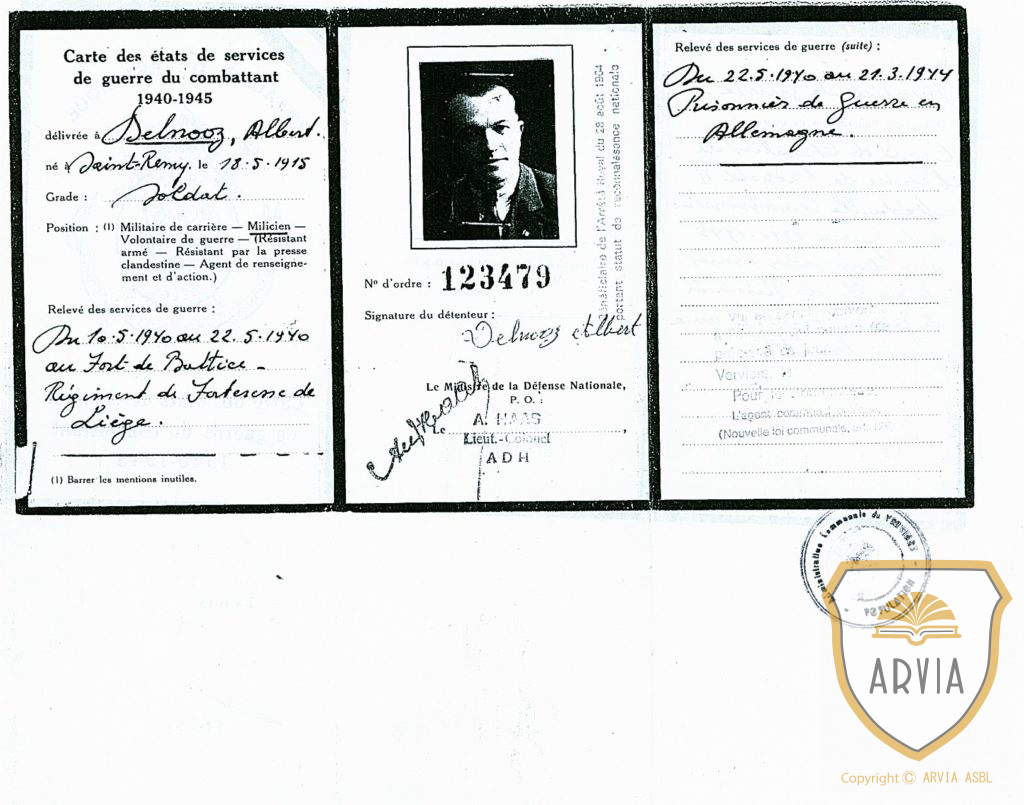 Carte des états de services
de guerre du combattant
1940-1945
délivrée à Delnooz, Albert.
né à Saint-Remy. le 18.5.1915
Grade : Soldat.
Position : (1) Militaire de carrière — Milicien —
Volontaire de guerre — (Résistant
armé — Résistant par la presse
clandestine — Agent de renseigne-
ment et d'action.)
Relevé des services de guerre :
Du 10.5.1940 au 22.5.1940
au Fort de Battice -
Régiment de Forteresse de
Liège.
(1) Barrer les mentions inutiles.
Nº d'ordre : 123479
Signature du détenteur :
Delnooz Albert
Le Ministre de la Défense Nationale,
P. O. :
A. HAAS
Le
Lieut.-Colonel
ADH
Bénéficiaire de l'Arrêté Royal du 28 août 1964
portant statut de reconnaissance nationale
Relevé des services de guerre (suite) :
Du 22.5.1940 au 21.3.1944
Prisonnier de Guerre en
Allemagne.
Pour
L'agent
(Nouvelle loi communale, art.
Administration Communale de VERVIERS
POPULATION
ARVIA
Copyright © ARVIA ASBL